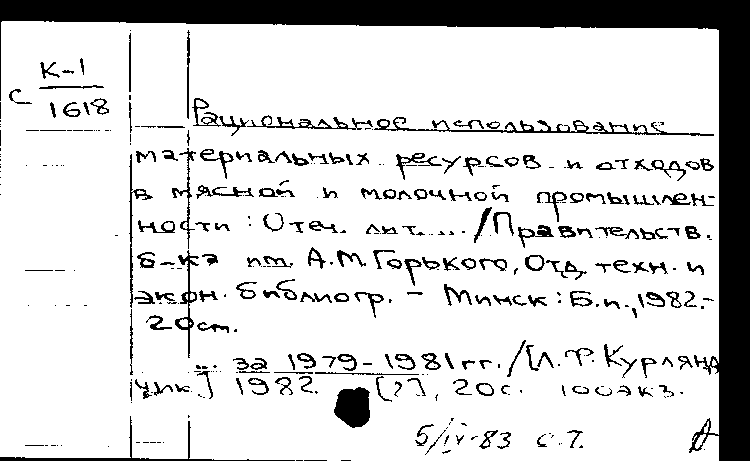 К-1
С 1618
Рациональное использование
материальных ресурсов и отходов
в мясной и молочной промышлен-
ности : Отеч. лит. ... / Правительств.
б-ка им. А.М. Горького, Отд. техн. и
экон. библиогр. - Минск : Б.и., 1982.-
20 см.
... за 1979-1981 гг. / [Л.Ф. Курлянд
чик] 1982. [2], 20 с. 100 экз.
5/IV-83 С.Т.